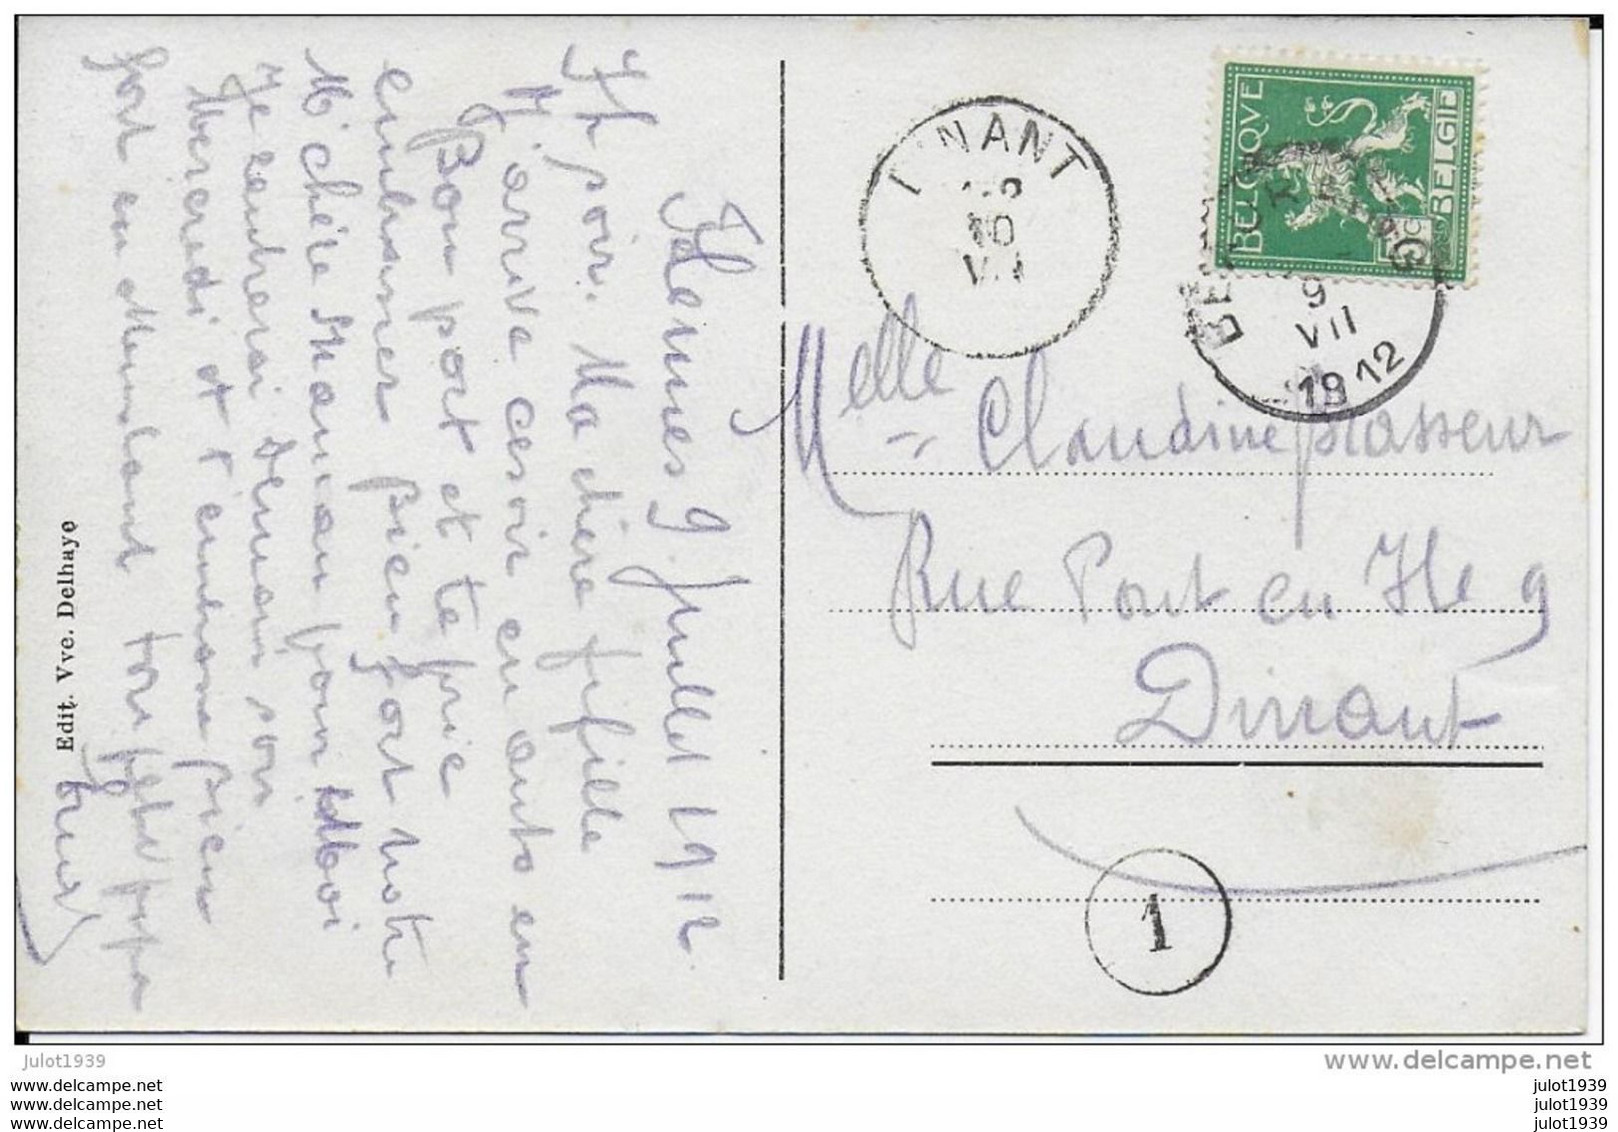 9 Juillet 1912
7h soir. Ma chère fifille
J'arrive ce soir en auto en
Bon port et te prie
embrasser Bien fort notre
chère Maman pour Moi
Je rentrerai Demain soir
Mercredi et t'embrasse Bien
fort en ton petit papa
Edit. Vve. Delhaye
DINANT
10
VII
BELGIQUE
BELGIË
9
VII
1912
Melle Claudine Brasseur
Rue Pont en Ile 9
Dinant
1
julot1939
www.delcampe.net
www.delcampe.net
www.delcampe.net
www.delcampe.net
julot1939
julot1939
julot1939